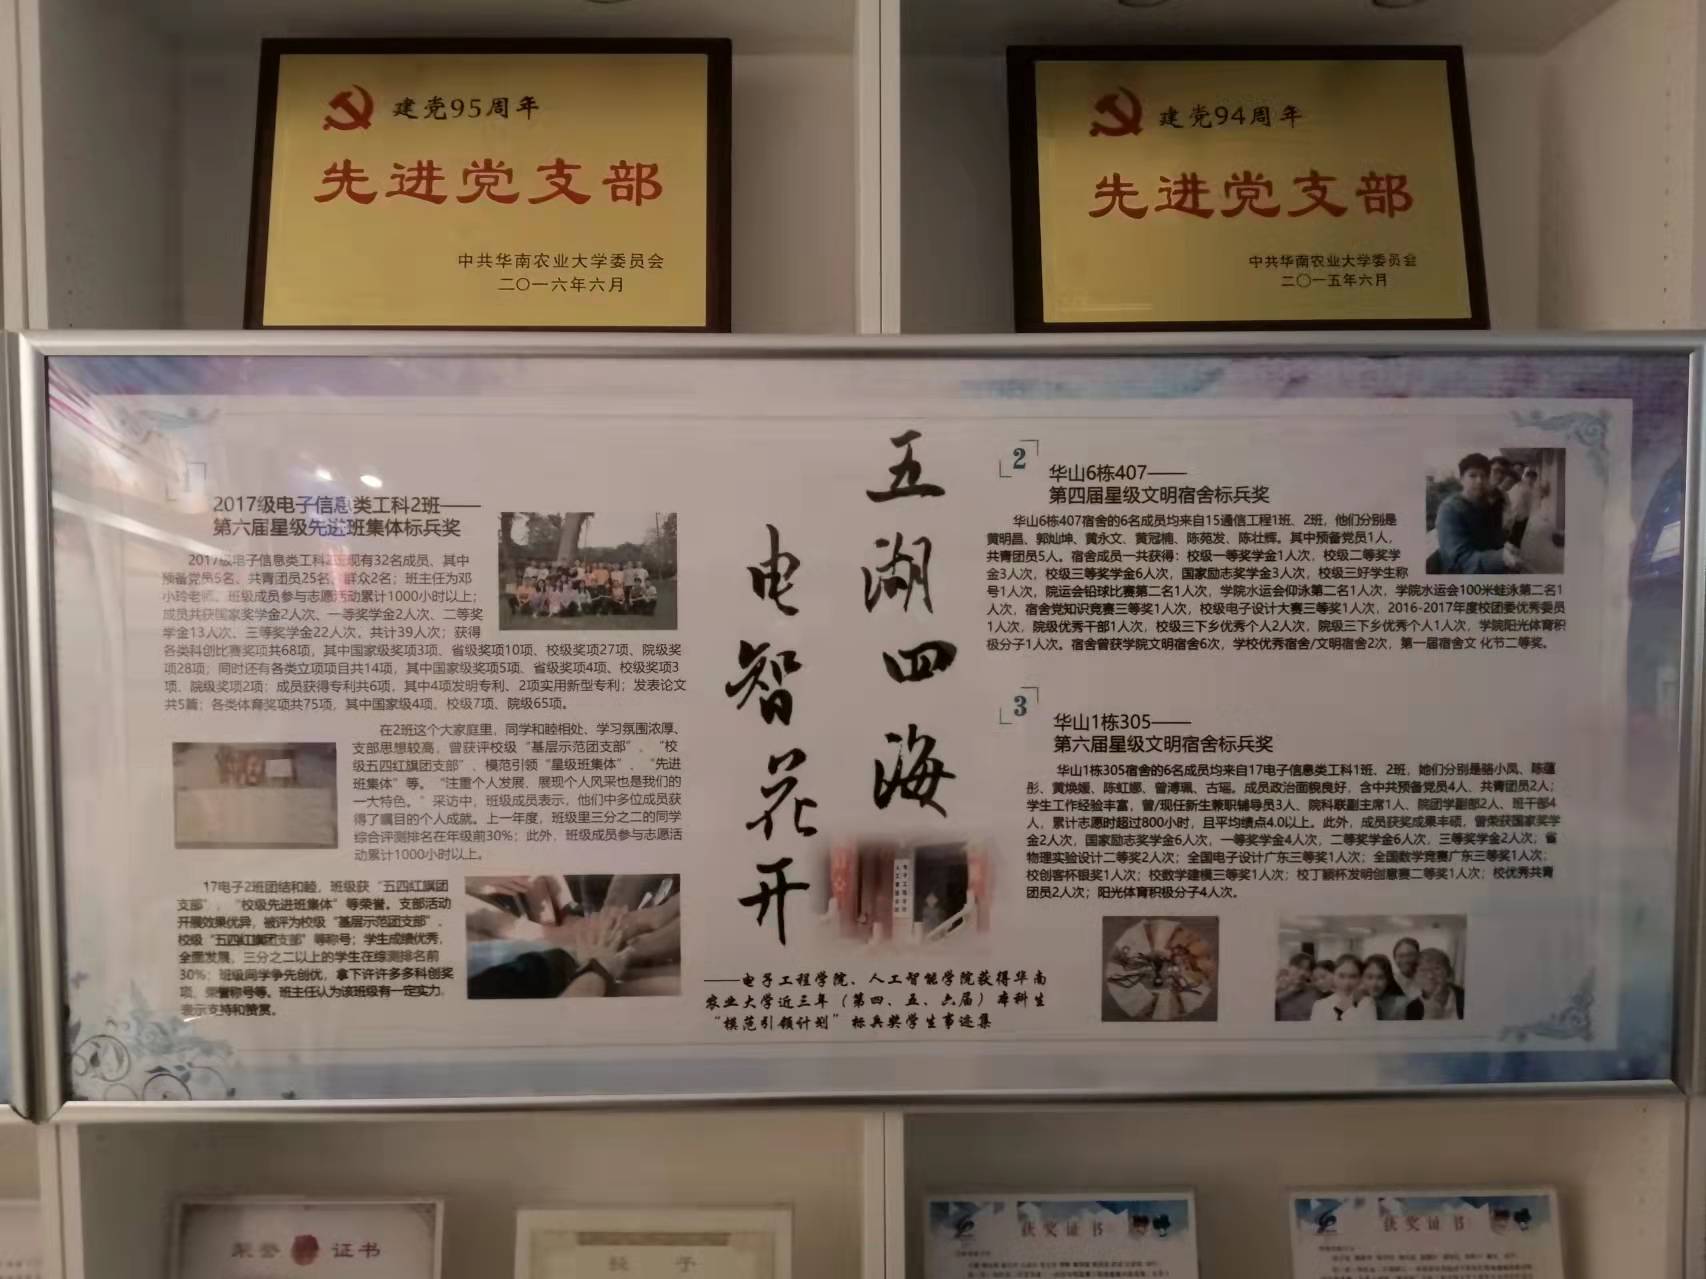 建党95周年
先进党支部
中共华南农业大学委员会
二〇一六年六月
建党94周年
先进党支部
中共华南农业大学委员会
二〇一五年六月
1
2017级电子信息类工科2班——
第六届星级先进班集体标兵奖
2017级电子信息类工科2班现有32名成员、其中
预备党员5名、共青团员25名、群众2名；班主任为邓
小玲老师。班级成员参与志愿活动累计1000小时以上；
成员共获国家奖学金2人次、一等奖学金2人次、二等奖
学金13人次、三等奖学金22人次，共计39人次；获得
各类科创比赛奖项共68项，其中国家级奖项3项、省级奖项10项、校级奖项27项、院级奖
项28项；同时还有各类立项项目共14项，其中国家级奖项5项、省级奖项4项、校级奖项3
项、院级奖项2项；成员获得专利共6项，其中4项发明专利、2项实用新型专利；发表论文
共5篇；各类体育奖项共75项，其中国家级4项，校级7项、院级65项。
在2班这个大家庭里，同学和睦相处、学习氛围浓厚、
支部思想较高，曾获评校级“基层示范团支部”、“校
级五四红旗团支部”、模范引领“星级班集体”、“先进
班集体”等。“注重个人发展、展现个人风采也是我们的
一大特色。”采访中，班级成员表示，他们中多位成员获
得了瞩目的个人成就。上一年度，班级里三分之二的同学
综合评测排名在年级前30%；此外，班级成员参与志愿活
动累计1000小时以上。
17电子2班团结和睦，班级获“五四红旗团
支部”，“校级先进班集体”等荣誉。支部活动
开展效果优异，被评为校级“基层示范团支部”、
校级“五四红旗团支部”等称号；学生成绩优秀，
全面发展，三分之二以上的学生在综测排名前
30%；班级同学争先创优，拿下许许多多科创奖
项、荣誉称号等。班主任认为该班级有一定实力，
表示支持和赞赏。
五湖四海
电智花开
——电子工程学院、人工智能学院获得华南
农业大学近三年（第四、五、六届）本科生
“模范引领计划”标兵奖学生事迹集
2
华山6栋407——
第四届星级文明宿舍标兵奖
华山6栋407宿舍的6名成员均来自15通信工程1班、2班，他们分别是
黄明昌、郭灿坤、黄永文、黄冠楠、陈苑发、陈壮辉。其中预备党员1人，
共青团员5人。宿舍成员一共获得：校级一等奖学金1人次，校级二等奖学
金3人次，校级三等奖学金6人次，国家励志奖学金3人次，校级三好学生称
号1人次，院运会铅球比赛第二名1人次，学院水运会仰泳第二名1人次，学院水运会100米蛙泳第二名1
人次，宿舍党知识竞赛三等奖1人次，校级电子设计大赛三等奖1人次，2016-2017年度校团委优秀委员
1人次，院级优秀干部1人次，校级三下乡优秀个人2人次，院级三下乡优秀个人1人次，学院阳光体育积
极分子1人次。宿舍曾获学院文明宿舍6次，学校优秀宿舍/文明宿舍2次，第一届宿舍文 化节二等奖。
3
华山1栋305——
第六届星级文明宿舍标兵奖
华山1栋305宿舍的6名成员均来自17电子信息类工科1班、2班，她们分别是骆小凤、陈蕴
彤、黄焕媛、陈虹娜、曾溥珮、古瑶。成员政治面貌良好，含中共预备党员4人、共青团员2人；
学生工作经验丰富，曾/现任新生兼职辅导员3人、院科联副主席1人、院团学副部2人、班干部4
人，累计志愿时超过800小时，且平均绩点4.0以上。此外，成员获奖成果丰硕，曾荣获国家奖学
金2人次，国家励志奖学金6人次，一等奖学金4人次，二等奖学金6人次，三等奖学金2人次；省
物理实验设计二等奖2人次；全国电子设计广东三等奖1人次；全国数学竞赛广东三等奖1人次；
校创客杯银奖1人次；校数学建模三等奖1人次；校丁颖杯发明创意赛二等奖1人次；校优秀共青
团员2人次；阳光体育积极分子4人次。
荣誉证书
获奖证书
获奖证书